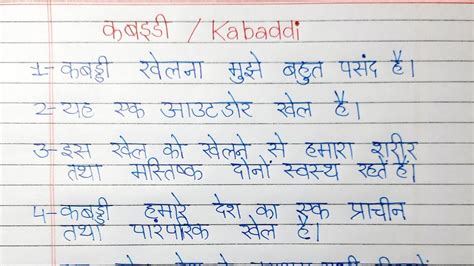 कबड्डी / Kabaddi
1- कबड्डी खेलना मुझे बहुत पसंद है।
2- यह एक आउटडोर खेल है।
3- इस खेल को खेलने से हमारा शरीर
तथा मस्तिष्क दोनों स्वस्थ रहते हैं।
4- कबड्डी हमारे देश का एक प्राचीन
तथा पारंपरिक खेल है।